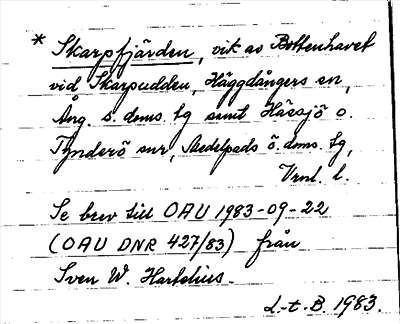 * Skarpfjärden, vik av Bottenhavet
vid Skarpudden, Häggdångers sn,
Ång. s. doms. tg samt Hässjö o.
Tynderö snr, Medelpads ö. doms. tg,
Vrnl. l.
Se brev till OAU 1983-09-22
(OAU DNR 427/83) från
Sven W. Hartelius.
L-t-B. 1983.